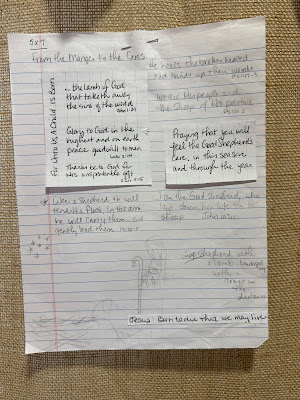 5x7
From the Manger to the Cross
For Unto Us A Child is Born
... the lamb of God
that taketh away
the sins of the world
John 1:29
Glory to God in the
highest and on earth
peace goodwill to man
Luke 2:14
Thanks be to God for
His unspeakable gift
2 Cor 9:15
He heals the broken hearted
and binds up their wounds
We are the people and
the sheep of His pasture
Praying that you will
feel the Good Shepherd's
care, in this season
and through the year
Like a shepherd He will
tend His flock, in the arm
He will carry them and
gently lead them
I am the Good Shepherd, who
lays down his life for the
sheep John 10:11
Shepherd with
a lamb
with a
Cross in
the
distance
Jesus: Born to die that we may live